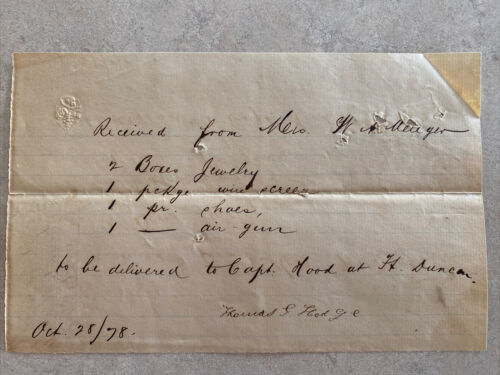 Received from Mrs. W. A. Menger
2 Boxes Jewelry
1 pckge wire screen
1 pr. shoes,
1 — air-gun
to be delivered to Capt. Hood at Ft. Duncan.
Thomas G Hodge
Oct. 28/78.